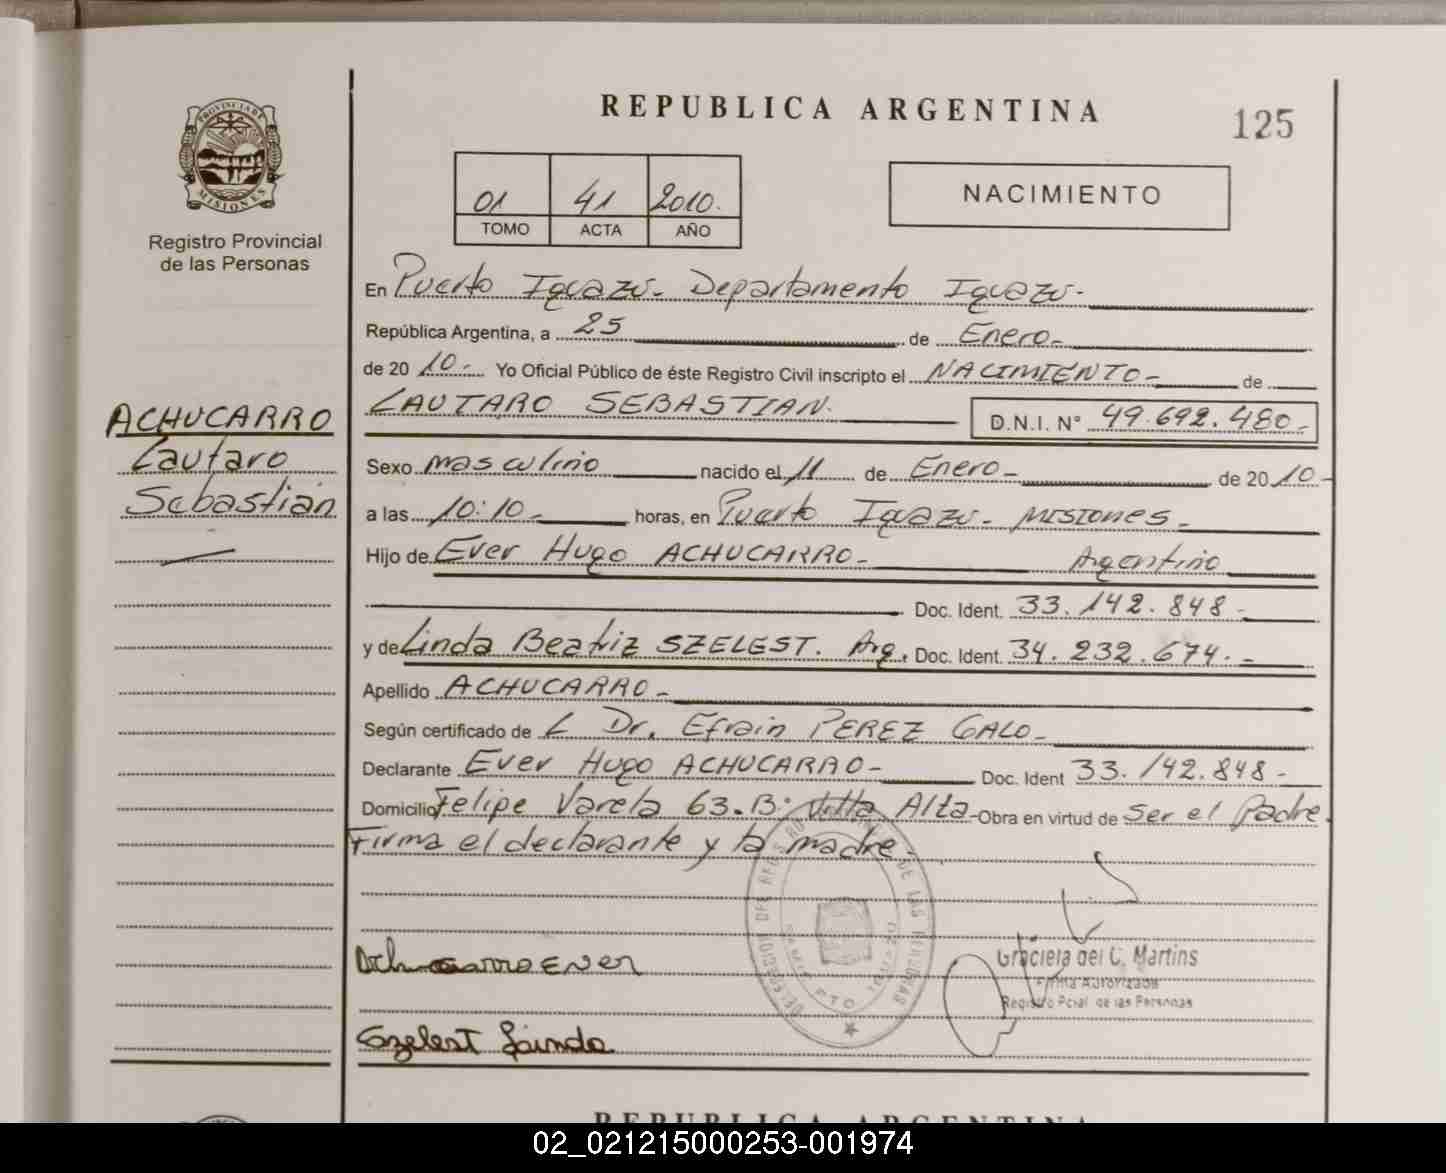 REPUBLICA ARGENTINA
125
PROVINCIA DE
MISIONES
Registro Provincial
de las Personas
01 41 2010.
TOMO ACTA AÑO
NACIMIENTO
En Puerto Iguazú - Departamento Iguazú -
República Argentina, a 25 de Enero -
de 20 10 - Yo Oficial Público de éste Registro Civil inscripto el NACIMIENTO - de
LAUTARO SEBASTIAN. D.N.I. N° 49.692.480 -
ACHUCARRO
Lautaro
Sebastián
Sexo masculino nacido el 11 de Enero - de 20 10 -
a las 10:10 - horas, en Puerto Iguazú - MISIONES -
Hijo de Ever Hugo ACHUCARRO - Argentino
Doc. Ident. 33.142.848 -
y de Linda Beatriz SZELEST. Arg. Doc. Ident. 34.232.674. -
Apellido ACHUCARRO -
Según certificado de L Dr. Efrain PEREZ GALO -
Declarante Ever Hugo ACHUCARRO - Doc. Ident 33.142.848 -
Domicilio Felipe Varela 63. B: Villa Alta - Obra en virtud de ser el padre.
Firma el declarante y la madre -
DELEGACION DEL REGISTRO DE LAS PERSONAS
Achucarro Ever
Graciela del C. Martins
Firma Autorizada
Registro Pcial. de las Personas
Szelest Linda
REPUBLICA ARGENTINA
02_021215000253-001974